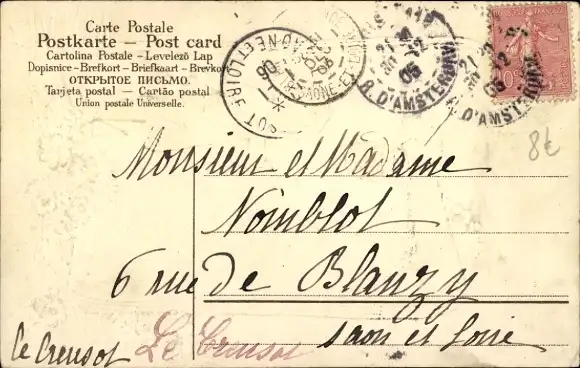 Carte Postale
Postkarte — Post card
Cartolina Postale - Levelező Lap
Dopisnice - Brefkort - Briefkaart - Brevkort
ОТКРЫТОЕ ПИСЬМО.
Tarjeta postal — Cartão postal
Union postale Universelle.
SOT
ET LOIRE
06
SAONE-ET-
21
30 -12
05
R. D'AMSTERDAM
21
30 12
05
R. D'AMSTERDAM
10
8€
Monsieur et Madame
Nomblot
6 rue de Blanzy
saon et loire
le Creusot
Le Creusot